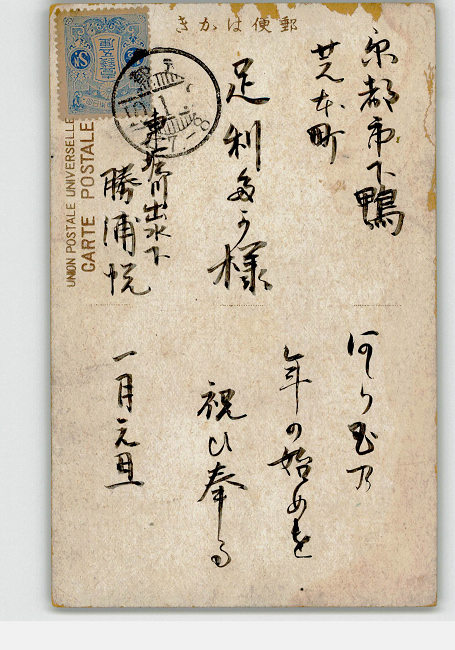 きかは便郵
京都市下鴨
芝本町
足利多か様
東堀川出水下
勝浦悦
あら玉乃
年の始めを
祝ひ奉る
一月元旦
UNION POSTALE UNIVERSELLE
CARTE POSTALE